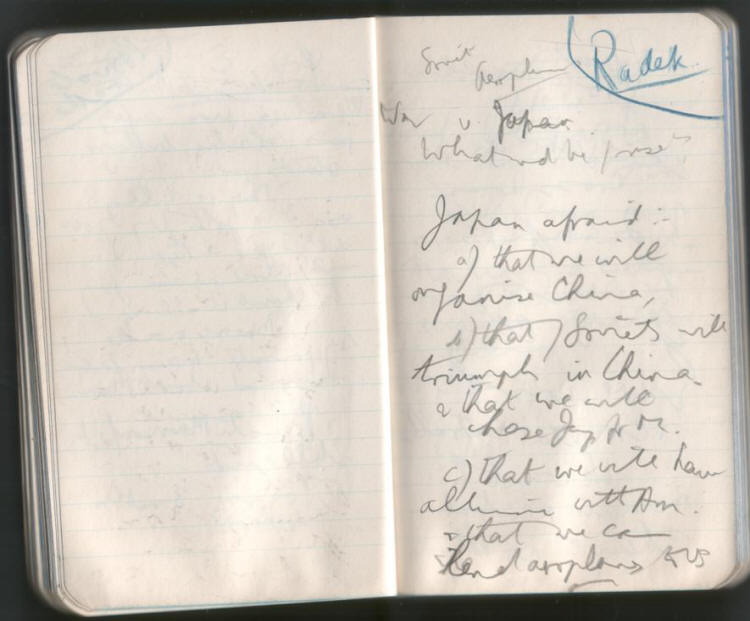 Radek
Soviet
aeroplane
War v Japan.
What wd be
Japan afraid :-
a) that we will
organise China,
b) that Soviets will
triumph in China
& that we will
chase Jap fr M.
c) that we will have
alliance with Am.
& that we can
send aeroplanes to US